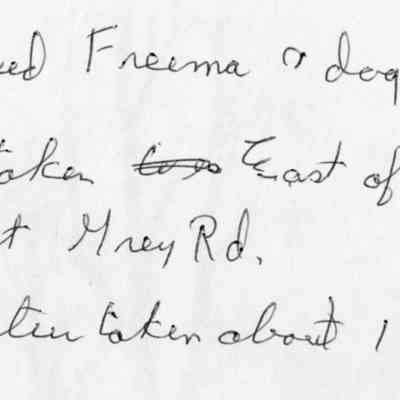 ed Freema & dog
taken East of
t Grey Rd.
taken about 1